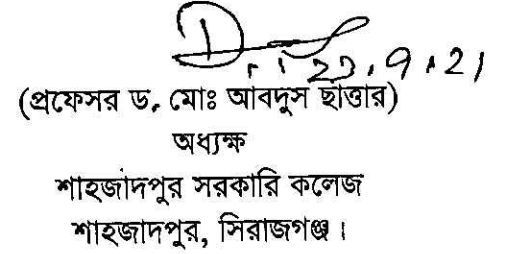 23.9.21
(প্রফেসর ড. মোঃ আবদুস ছাত্তার)
অধ্যক্ষ
শাহজাদপুর সরকারি কলেজ
শাহজাদপুর, সিরাজগঞ্জ।